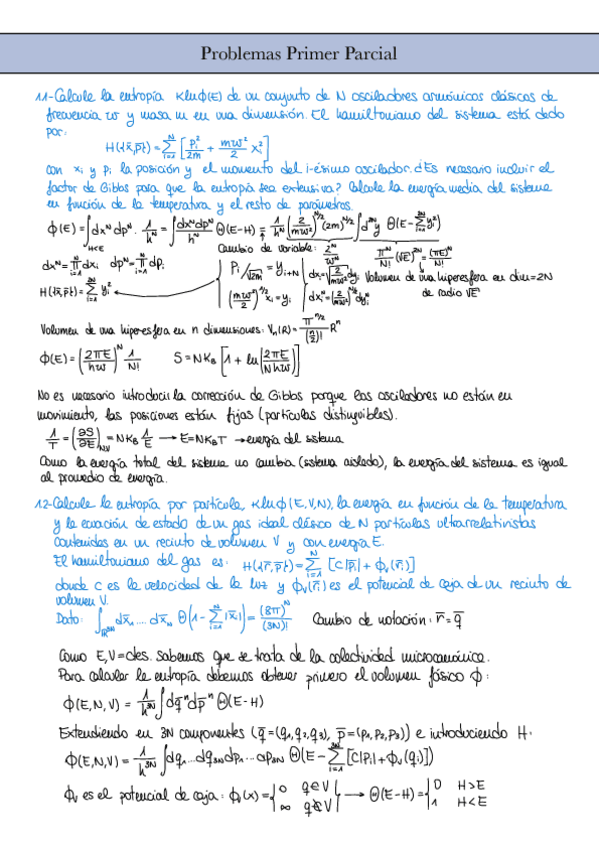 Problemas Primer Parcial
1.1-Calcule la entropía KlnΦ(E) de un conjunto de N osciladores armónicos clásicos de
frecuencia w y masa m en una dimensión. El hamiltoniano del sistema está dado
por:
H({x̄,p̄}) = Σ_{i=1}^{N} [p_i²/2m + mw²/2 x_i²]
con x_i y p_i la posición y el momento del i-ésimo oscilador. ¿Es necesario incluir el
factor de Gibbs para que la entropía sea extensiva? Calcule la energía media del sistema
en función de la temperatura y el resto de parámetros.
Φ(E) = ∫_{H<E} dx^N dp^N · 1/h^N = ∫ dx^N dp^N / h^N Θ(E-H) = 1/h^N (2/mw²)^{N/2} (2m)^{N/2} ∫ d^{2N}y Θ(E - Σ_{i=1}^{2N} y_i²)
Cambio de variable: 2^N/w^N π^N/N! (√E)^{2N} = (πE)^N/N!
dx^N = Π_{i=1}^{N} dx_i dp^N = Π_{i=1}^{N} dp_i
P_i/√2m = y_{i+N} dx_i = √(2/mw²) dy_i Volumen de una hiperesfera en dim=2N
H({x̄,p̄}) = Σ_{i=1}^{2N} y_i²
(mw²/2)^{1/2} x_i = y_i dx_i^N = (2/mw²)^{N/2} dy_i^N de radio √E
Volumen de una hiperesfera en n dimensiones: V_n(R) = π^{n/2}/(n/2)! R^n
Φ(E) = (2πE/hw)^N 1/N! S = NK_B [1 + ln(2πE/Nhw)]
No es necesario introducir la corrección de Gibbs porque los osciladores no están en
movimiento, las posiciones están fijas (partículas distinguibles).
1/T = (∂S/∂E)_{N,V} = NK_B 1/E → E = NK_BT → energía del sistema
Como la energía total del sistema no cambia (sistema aislado), la energía del sistema es igual
al promedio de energía.
1.2-Calcule la entropía por partícula, KlnΦ(E,V,N), la energía en función de la temperatura
y la ecuación de estado de un gas ideal clásico de N partículas ultrarrelativistas
contenidas en un recinto de volumen V y con energía E.
El hamiltoniano del gas es: H({r̄,p̄}) = Σ_{i=1}^{N} [C|p̄_i| + Φ_V(r̄_i)]
donde C es la velocidad de la luz y Φ_V(r̄_i) es el potencial de caja de un recinto de
volumen V.
Dato: ∫_{R^{3N}} dx̄_1....dx̄_N Θ(1 - Σ_{i=1}^{N} |x̄_i|) = (8π)^N/(3N)! Cambio de notación: r̄ = q̄
Como E,V=ctes. sabemos que se trata de la colectividad microcanónica.
Para calcular la entropía debemos obtener primero el volumen fásico Φ:
Φ(E,N,V) = 1/h^{3N} ∫ dq̄^n dp̄^n Θ(E-H)
Extendiendo en 3N componentes (q̄=(q1,q2,q3), p̄=(p1,p2,p3)) e introduciendo H:
Φ(E,N,V) = 1/h^{3N} ∫ dq1...dq3N dp1...dp3N Θ(E - Σ_{i=1}^{3N} [C|P_i| + Φ_V(q_i)])
Φ_V es el potencial de caja: Φ_V(x) = {0 q∈V → Θ(E-H) = {0 H>E
∞ q∉V 1 H<E